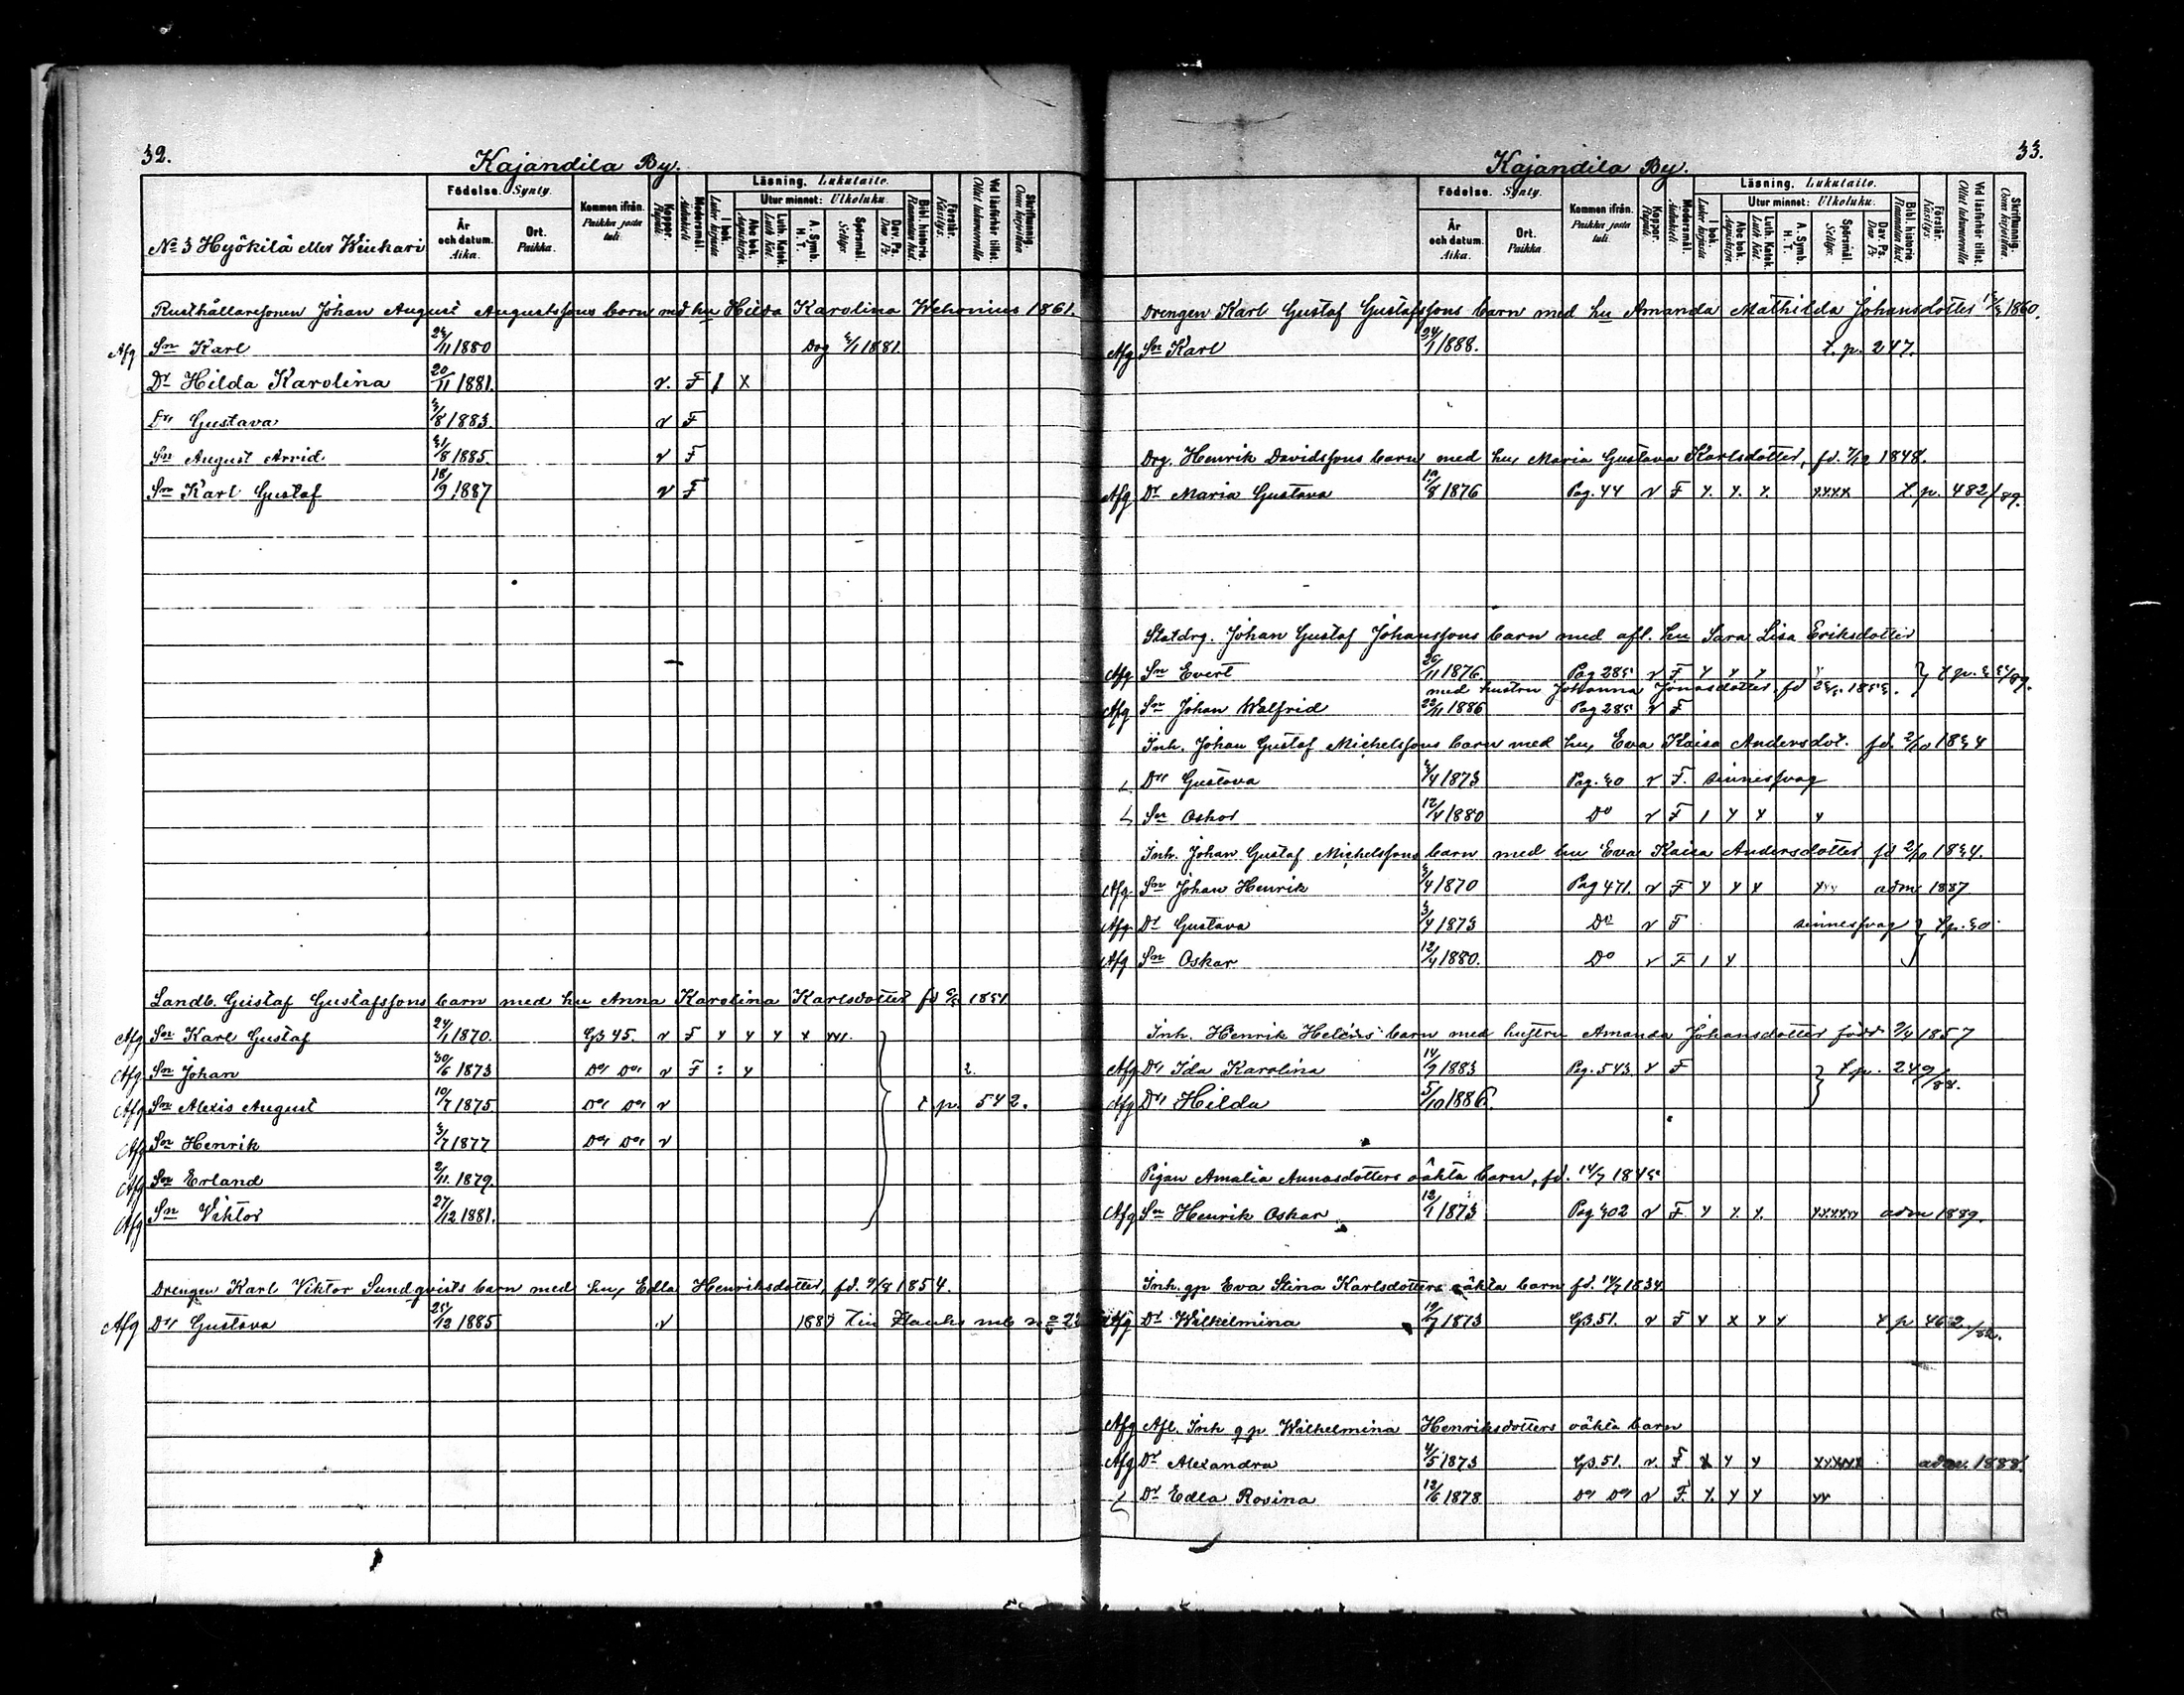 32.
Kajandila By.
Födelse. Synty.
Läsning. Lukutaito.
Utur minnet: Ulkoluku.
År och datum. Aika.
Ort. Paikka.
Kommen ifrån. Paikka josta tuli.
Koppor. Rupuli.
Modersmål. Äidinkieli
I bok. Lukee kirjasta
Abc bok. Aapiskirja.
Luth. Katek. Luth. Kat.
A. Symb. H. T.
Spörsmål. Selitys.
Dav. Ps. Dav. Ps.
Bibl. historie. Raamatun hist.
Förstår. Käsitys.
Vid läsförhör tillst. Ollut lukuvuorolla
Skriftkunnig. Osaa kirjoittaa.
No 3 Hyökilä eller Wiukari
Rusthållaresonen Johan August Augustssons barn med hu Hilda Karolina Wehonius 1861.
Afg Sn Karl 24/11 1880 Dog 1881.
Dr Hilda Karolina 20/11 1881. v. F 1 x
Dr Gustava 3/8 1883. v F
Sn August Arvid. 31/8 1885. v F
Sn Karl Gustaf 18/9 1887 v F
Landb. Gustaf Gustafssons barn med hu Anna Karolina Karlsdotter fd 1851
Afg Sn Karl Gustaf 24/1 1870. GB 45. v F x x x x xxx.
Afg Sn Johan 30/6 1873 Do Do v F : x 2.
Afg Sn Alexis August 10/7 1875. Do Do v t. p. 542.
Afg Sn Henrik 3/7 1877 Do Do v
Afg Sn Erland 2/11. 1879.
Afg Sn Viktor 27/12 1881.
Drengen Karl Viktor Sundqvists barn med hu, Edla Henriksdotter, fd. 9/8 1854.
Afg Dr Gustava 25/12 1885 v 1887 till Hauho mb no 22
33.
Kajandila By.
Födelse. Synty.
Läsning. Lukutaito.
Utur minnet: Ulkoluku.
År och datum. Aika.
Ort. Paikka.
Kommen ifrån. Paikka josta tuli.
Koppor. Rupuli.
Modersmål. Äidinkieli
I bok. Lukee kirjasta
Abc bok. Aapiskirja.
Luth. Katek. Luth. Kat.
A. Symb. H. T.
Spörsmål. Selitys.
Dav. Ps. Dav. Ps.
Bibl. historie. Raamatun hist.
Förstår. Käsitys.
Vid läsförhör tillst. Ollut lukuvuorolla
Skriftkunnig. Osaa kirjoittaa.
Drengen Karl Gustaf Gustafssons barn med hu Amanda Mathilda Johansdotter 1860.
Afg Sn Karl 24/1 1888. t. p. 247.
Drg. Henrik Davidssons barn med hu, Maria Gustava Karlsdotter, fd. 7/12 1848.
Afg Dr Maria Gustava 10/8 1876 Pag. 44 v F x. x. x. xxxx t. p. 482/89.
Statdrg. Johan Gustaf Johanssons barn med afl. hu Sara Lisa Eriksdotter
Afg Sn Evert 26/11 1876 Pag 285 v F x x x
med hustru Johanna Jonasdotter fd
Afg Sn Johan Walfrid 22/11 1886 Pag 285 v F
Inh. Johan Gustaf Michelssons barn med hu, Eva Kaisa Andersdot. fd. 2/10 1834
Dr Gustava 3/4 1873 Pag. 30 v F. sinnessvag
Sn Oskar 12/4 1880 Do v F 1 x x x
Inh. Johan Gustaf Michelssons barn med hu Eva Kaisa Andersdotter fd 2/10 1834.
Afg. Sn Johan Henrik 1870 Pag 471. v F x x x xxx adm 1887
Afg. Dr Gustava 3/4 1873 Do v F sinnessvag t p. 30.
Afg Sn Oskar 12/4 1880. Do v F 1 x
Inh. Henrik Heléns barn med hustru Amanda Johansdotter född 9/4 1857
Afg Dr Ida Karolina 14/7 1883 Pg. 543. v F t. p. 249/88.
Afg Dr Hilda 5/10 1886.
Pigan Amalia Annasdotters oäkta barn, fd. 14/7 1845
Afg Sn Henrik Oskar 12/1 1873 Pag 302 v F. x x. x. xxxxxx adm 1889.
Inh. gp Eva Stina Karlsdotters oäkta barn fd. 14/7 1834.
Afg Dr Wilhelmina 19/7 1873 GB. 51. v F x x x x t p 462/88.
Afg Afl. Inh gp Wilhelmina Henriksdotters oäkta barn
Afg Dr Alexandra 4/5 1873 GB. 51. v. F. x x x xxxxx adm. 1888.
Dr Edla Rosina 12/6 1878 Do Do v F. x. x x xx